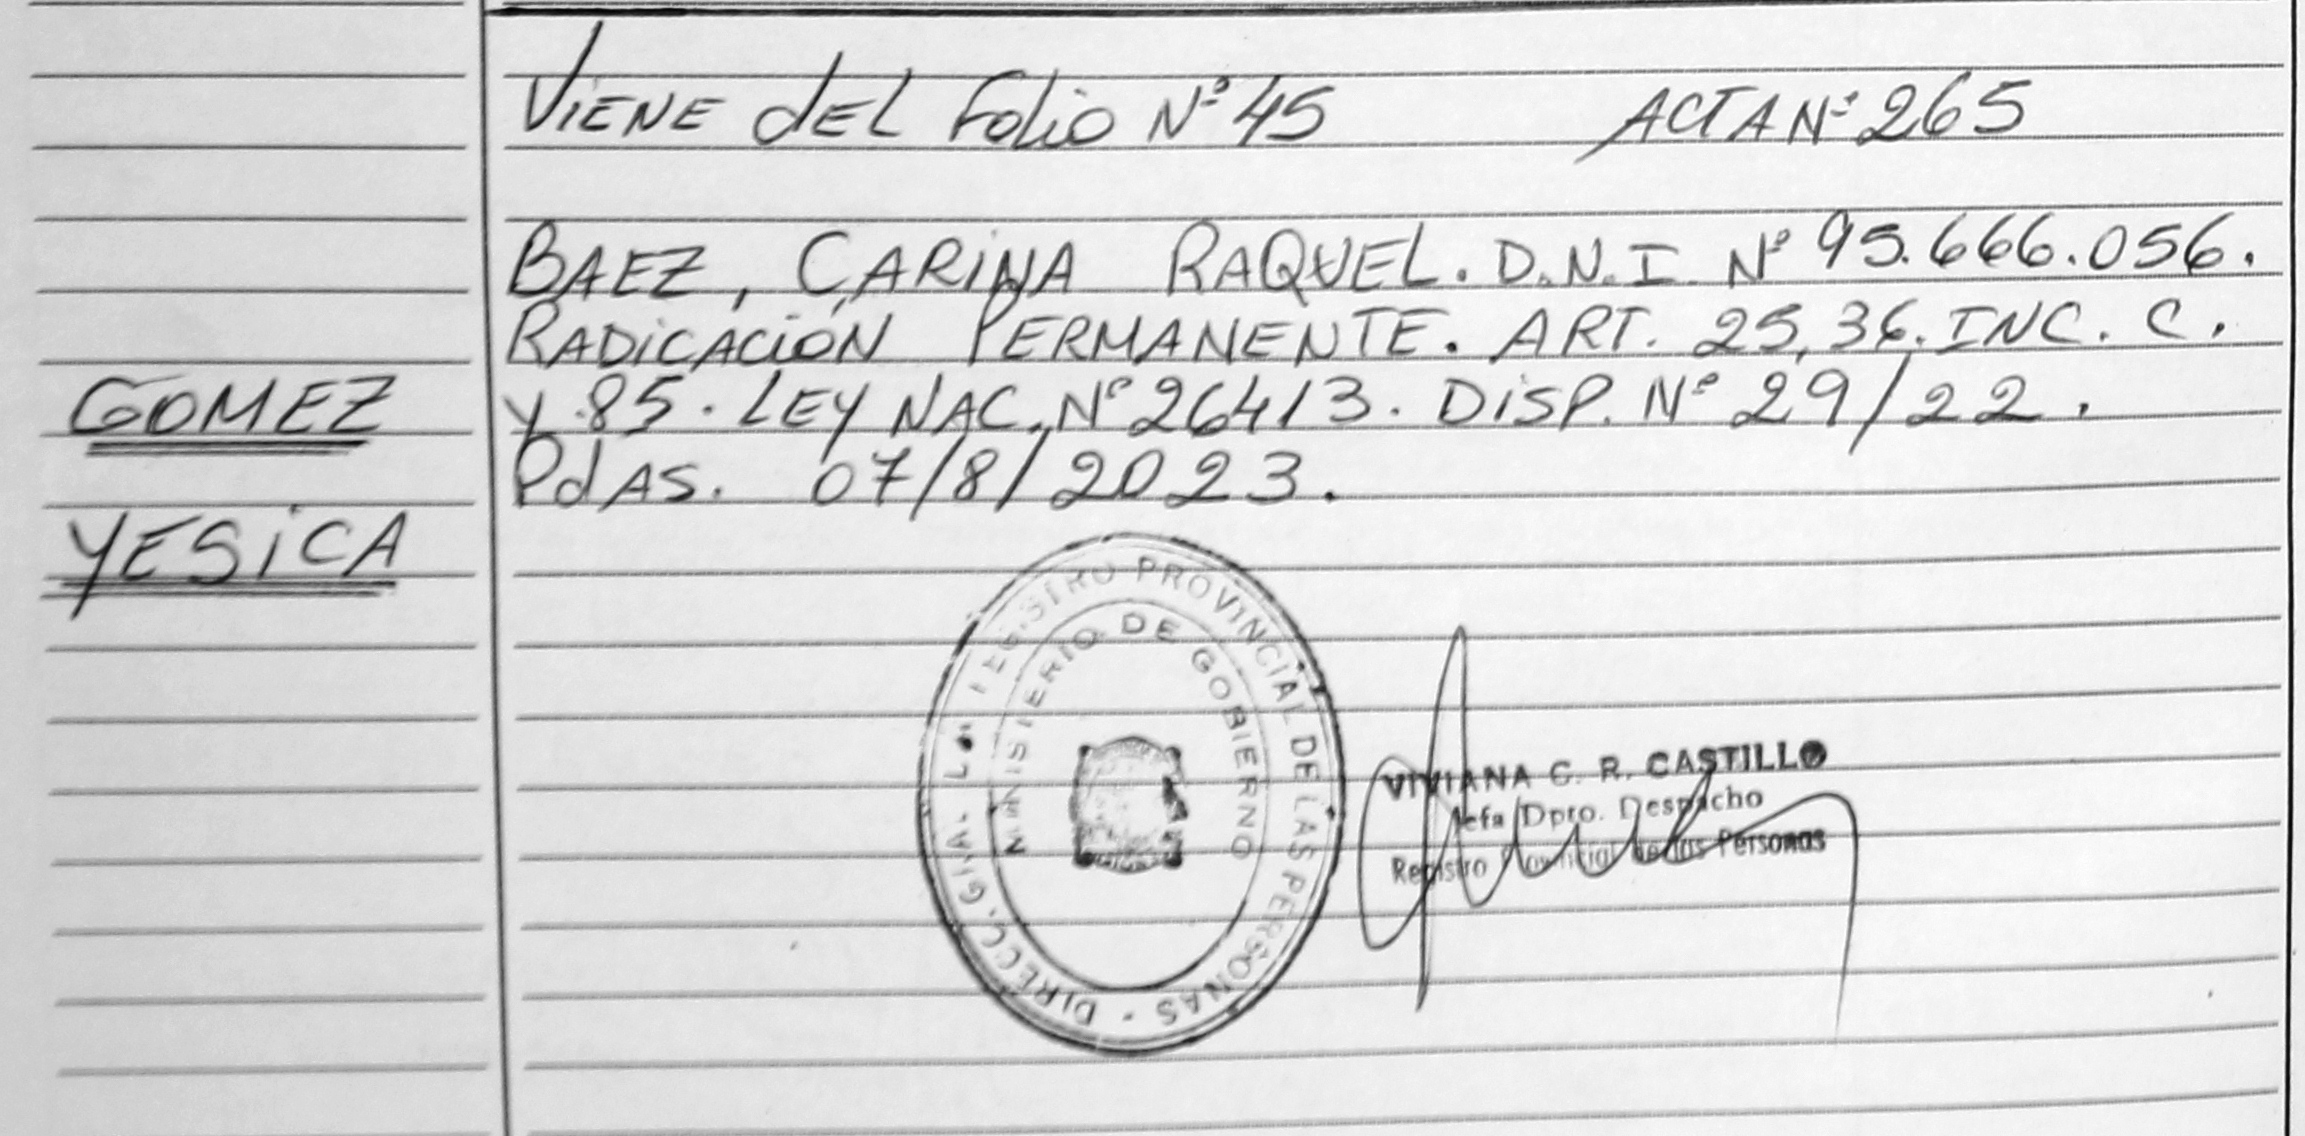 Viene del Folio N° 45 ACTA N° 265
BAEZ, CARINA RAQUEL. D.N.I N° 95.666.056.
RADICACIÓN PERMANENTE. ART. 25,36. INC. C.
y 85. LEY NAC. N° 26413. DISP. N° 29/22.
PdAS. 07/8/2023.
GOMEZ
YESICA
REGISTRO PROVINCIAL DE LAS PERSONAS - DIRECC. GRAL.
MINISTERIO DE GOBIERNO
VIVIANA C. R. CASTILLO
Jefa Dpto. Despacho
Registro Provincial de las Personas